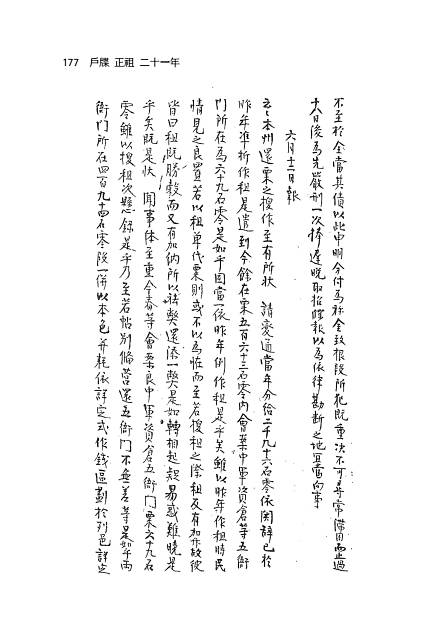 177 戶牒 正祖 二十一年
不至於全當其債以此申明分付爲㫆全致根段所犯旣重決不可尋常備罪是遣
十八日後爲先嚴刑一次棒遲晩取招牒報以爲依律勘斷之地宜當向事
六月十二日報
云云本州還栗之換作至有所狀 請變通當年分給二千九十六石零依關辭已於
昨年準折作租是遣到今餘在栗五百六十三石零內會案中軍資倉等五衙
門所在爲六十九石零是如乎因當一依昨年例作租是乎矣雖以昨年作租時民
情見之良置若以租單代栗則或不以爲怪而至若換租之際租及有加亦故使
皆曰租旣勝穀而又有加納所以特弊還添一弊是如轉相起疑易惑難曉是
乎矣旣是狀 聞事体至重今春等會案良中軍資倉五衙門栗六十九石
零雖以換租次懸錄是乎乃至若帖別備營還五衙門不無差等是如乎兩
衙門所在四百九十四石零段一倂以本色幷耗依詳定式作錢區劃於列邑詳定